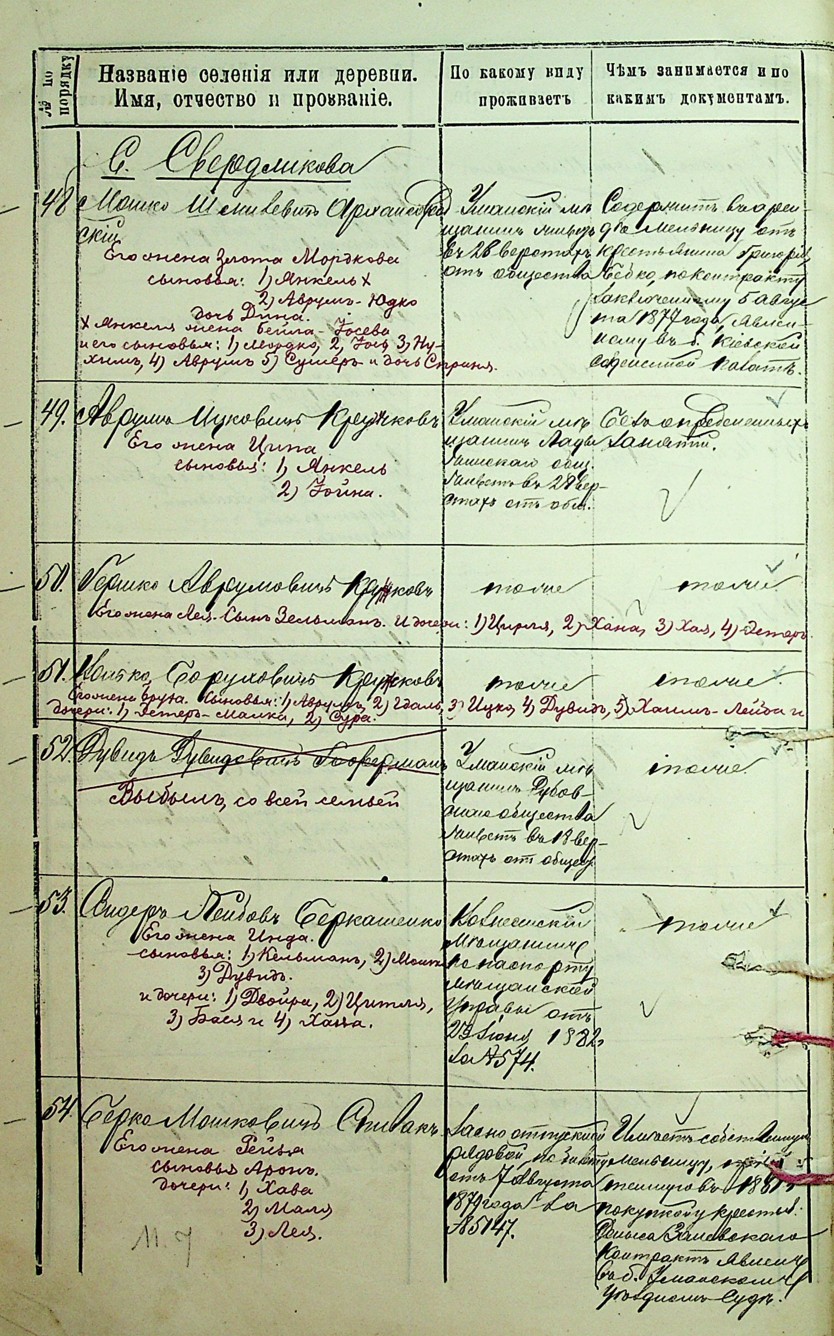 № по порядку
Названіе селенія или деревни.
Имя, отчество и прозваніе.
По какому виду
проживаетъ
Чѣмъ занимается и по
какимъ документамъ.
С. Свердликова
48
Мошко
скій
Его жена Злота Мордкова
сыновья: 1) Янкель X
2) Аврумъ-Юдко
дочь Дина.
X Янкеля жена Бейла-Іосева
и его сыновья: 1) Мордко, 2, Іось 3) Ну-
химъ, 4) Аврумъ 5) Сумеръ и дочь Сприня.
Уманскій мѣ
щанинъ
въ 28 верстахъ
отъ общества
Содержитъ въ арен-
ду мельницу отъ
крестьянина Григорія
по контракту
заключенному 5 Авгус
та 1877 года, явлен-
ному въ б. Кіевской
палатѣ.
49.
Аврумъ Ицковичъ Кружковъ
Его жена Ципа
сыновья: 1) Янкель
2) Іойна.
Уманскій мѣ
щанинъ Лады
жинскаго общ.
въ 28 вер-
стахъ отъ общ.
Безъ опредѣленныхъ
занятій.
50.
Гершко Аврумовичъ Кружковъ
тоже
тоже
Его жена Лея. Сынъ Зельманъ. И дочери: 1) Цирля, 2) Хана, 3) Хая, 4) Эстеръ
51.
Кружковъ
тоже
тоже
Его жена Сыновья: 1) Аврумъ, 2) Идаль, 3) Ицко, 4) Дувидъ, 5) Хаимъ-Лейба и
дочери: 1) Эстеръ-Малка, 2) Сура.
52.
Дувидъ Дувидовичъ
Выбылъ, со всей семьей
Уманскій мѣ
щанинъ
общества
въ 18 вер-
стахъ отъ общес
тоже
53.
Лейбовъ Беркашенко
Его жена Инда.
сыновья: 1) Кельманъ, 2) Мошко
3) Дувидъ.
и дочери: 1) Двойра, 2) Цитля,
3) Бася и 4) Хана.
мѣщанинъ
по паспорту
мѣщанской
управы отъ
1882
за № 574.
тоже
54.
Берко Мошковичъ Спивакъ
Его жена Рейзя
сыновья Аронъ.
дочери: 1) Хава
2) Маля
3) Лея.
Запаснотпускной
рядовой по билету
отъ 7 Августа
1879 года за
№ 5147.
Имѣетъ собственную
мельницу,
покупкой у крестья:
контрактъ явленъ
въ б. Уманскомъ
Уѣздномъ Судѣ.